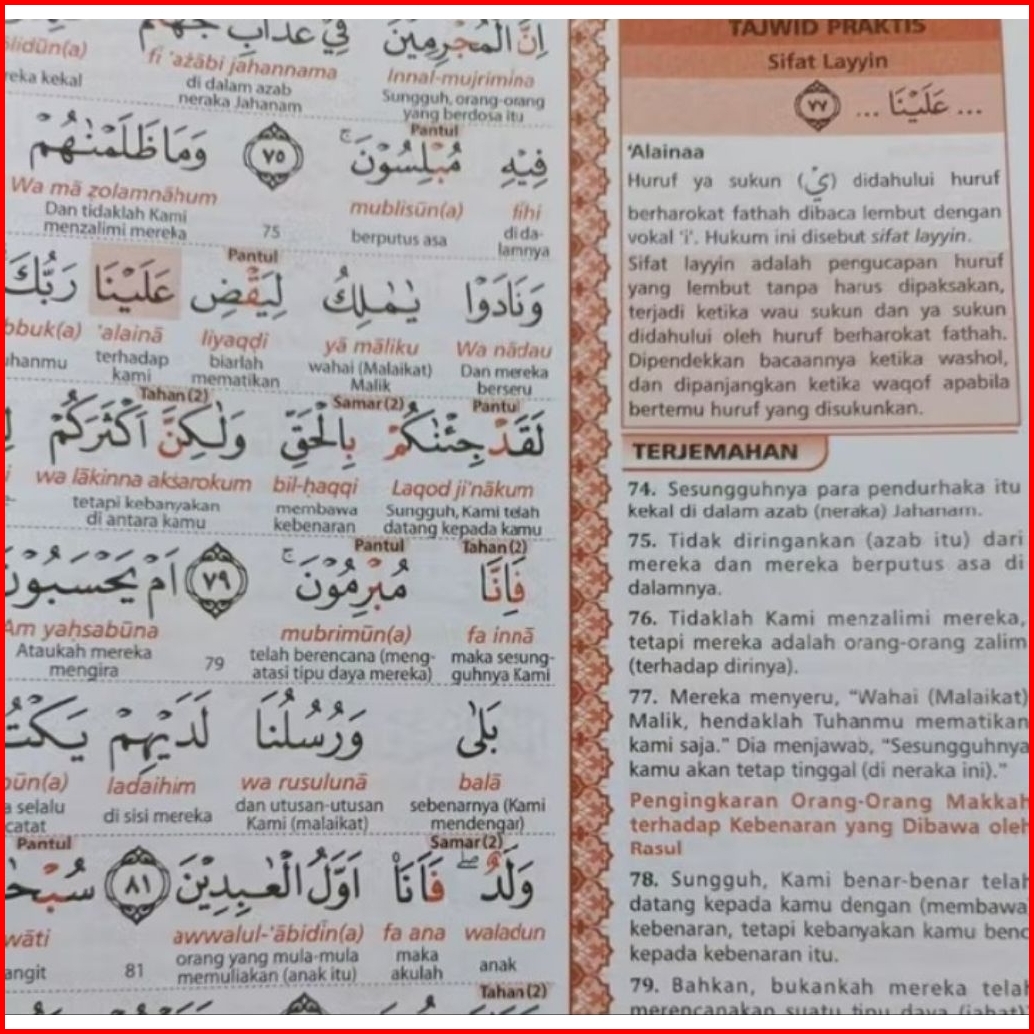 اِنَّ الْمُجْرِمِيْنَ فِيْ عَذَابِ جَهَنَّمَ
Innal-mujrimina fi 'ażābi jahannama lidūn(a)
Sungguh, orang-orang yang berdosa itu di dalam azab neraka Jahanam reka kekal
Pantul
فِيْهِ مُبْلِسُوْنَ ۚ ٧٥ وَمَا ظَلَمْنٰهُمْ
fihi mublisūn(a) Wa mā zolamnāhum
di da-lamnya berputus asa 75 Dan tidaklah Kami menzalimi mereka
Pantul
وَنَادَوْا يٰمٰلِكُ لِيَقْضِ عَلَيْنَا رَبُّكَ
Wa nādau yā māliku liyaqḍi 'alainā bbuk(a)
Dan mereka berseru wahai (Malaikat) Malik biarlah mematikan terhadap kami uhanmu
Pantul Samar(2) Tahan(2)
لَقَدْ جِئْنٰكُمْ بِالْحَقِّ وَلٰكِنَّ اَكْثَرَكُمْ
Laqod ji'nākum bil-ḥaqqi wa lākinna akśarokum
Sungguh, Kami telah datang kepada kamu membawa kebenaran tetapi kebanyakan di antara kamu
Tahan(2) Pantul
فَاِنَّا مُبْرِمُوْنَ ۚ ٧٩ اَمْ يَحْسَبُوْنَ
fa innā mubrimūn(a) Am yaḥsabūna
maka sesung-guhnya Kami telah berencana (meng-atasi tipu daya mereka) 79 Ataukah mereka mengira
بَلٰى وَرُسُلُنَا لَدَيْهِمْ يَكْتُ
balā wa rusulunā ladaihim būn(a)
sebenarnya (Kami mendengar) dan utusan-utusan Kami (malaikat) di sisi mereka a selalu catat
Samar(2) Pantul
وَلَدٌ ۖ فَاَنَا۠ اَوَّلُ الْعٰبِدِيْنَ ٨١ سُبْحٰ
waladun fa ana awwalul-'ābidīn(a) wāti
anak maka akulah orang yang mula-mula memuliakan (anak itu) 81 angit
Tahan(2)
TAJWID PRAKTIS
Sifat Layyin
... عَلَيْنَا ... ٧٧
'Alainaa
Huruf ya sukun (يْ) didahului huruf
berharokat fathah dibaca lembut dengan
vokal 'i'. Hukum ini disebut sifat layyin.
Sifat layyin adalah pengucapan huruf
yang lembut tanpa harus dipaksakan,
terjadi ketika wau sukun dan ya sukun
didahului oleh huruf berharokat fathah.
Dipendekkan bacaannya ketika washol,
dan dipanjangkan ketika waqof apabila
bertemu huruf yang disukunkan.
TERJEMAHAN
74. Sesungguhnya para pendurhaka itu
kekal di dalam azab (neraka) Jahanam.
75. Tidak diringankan (azab itu) dari
mereka dan mereka berputus asa di
dalamnya.
76. Tidaklah Kami menzalimi mereka,
tetapi mereka adalah orang-orang zalim
(terhadap dirinya).
77. Mereka menyeru, "Wahai (Malaikat)
Malik, hendaklah Tuhanmu mematikan
kami saja." Dia menjawab, "Sesungguhnya
kamu akan tetap tinggal (di neraka ini)."
Pengingkaran Orang-Orang Makkah
terhadap Kebenaran yang Dibawa oleh
Rasul
78. Sungguh, Kami benar-benar telah
datang kepada kamu dengan (membawa
kebenaran, tetapi kebanyakan kamu benc
kepada kebenaran itu.
79. Bahkan, bukankah mereka telah
merencanakan suatu tipu daya (jahat)